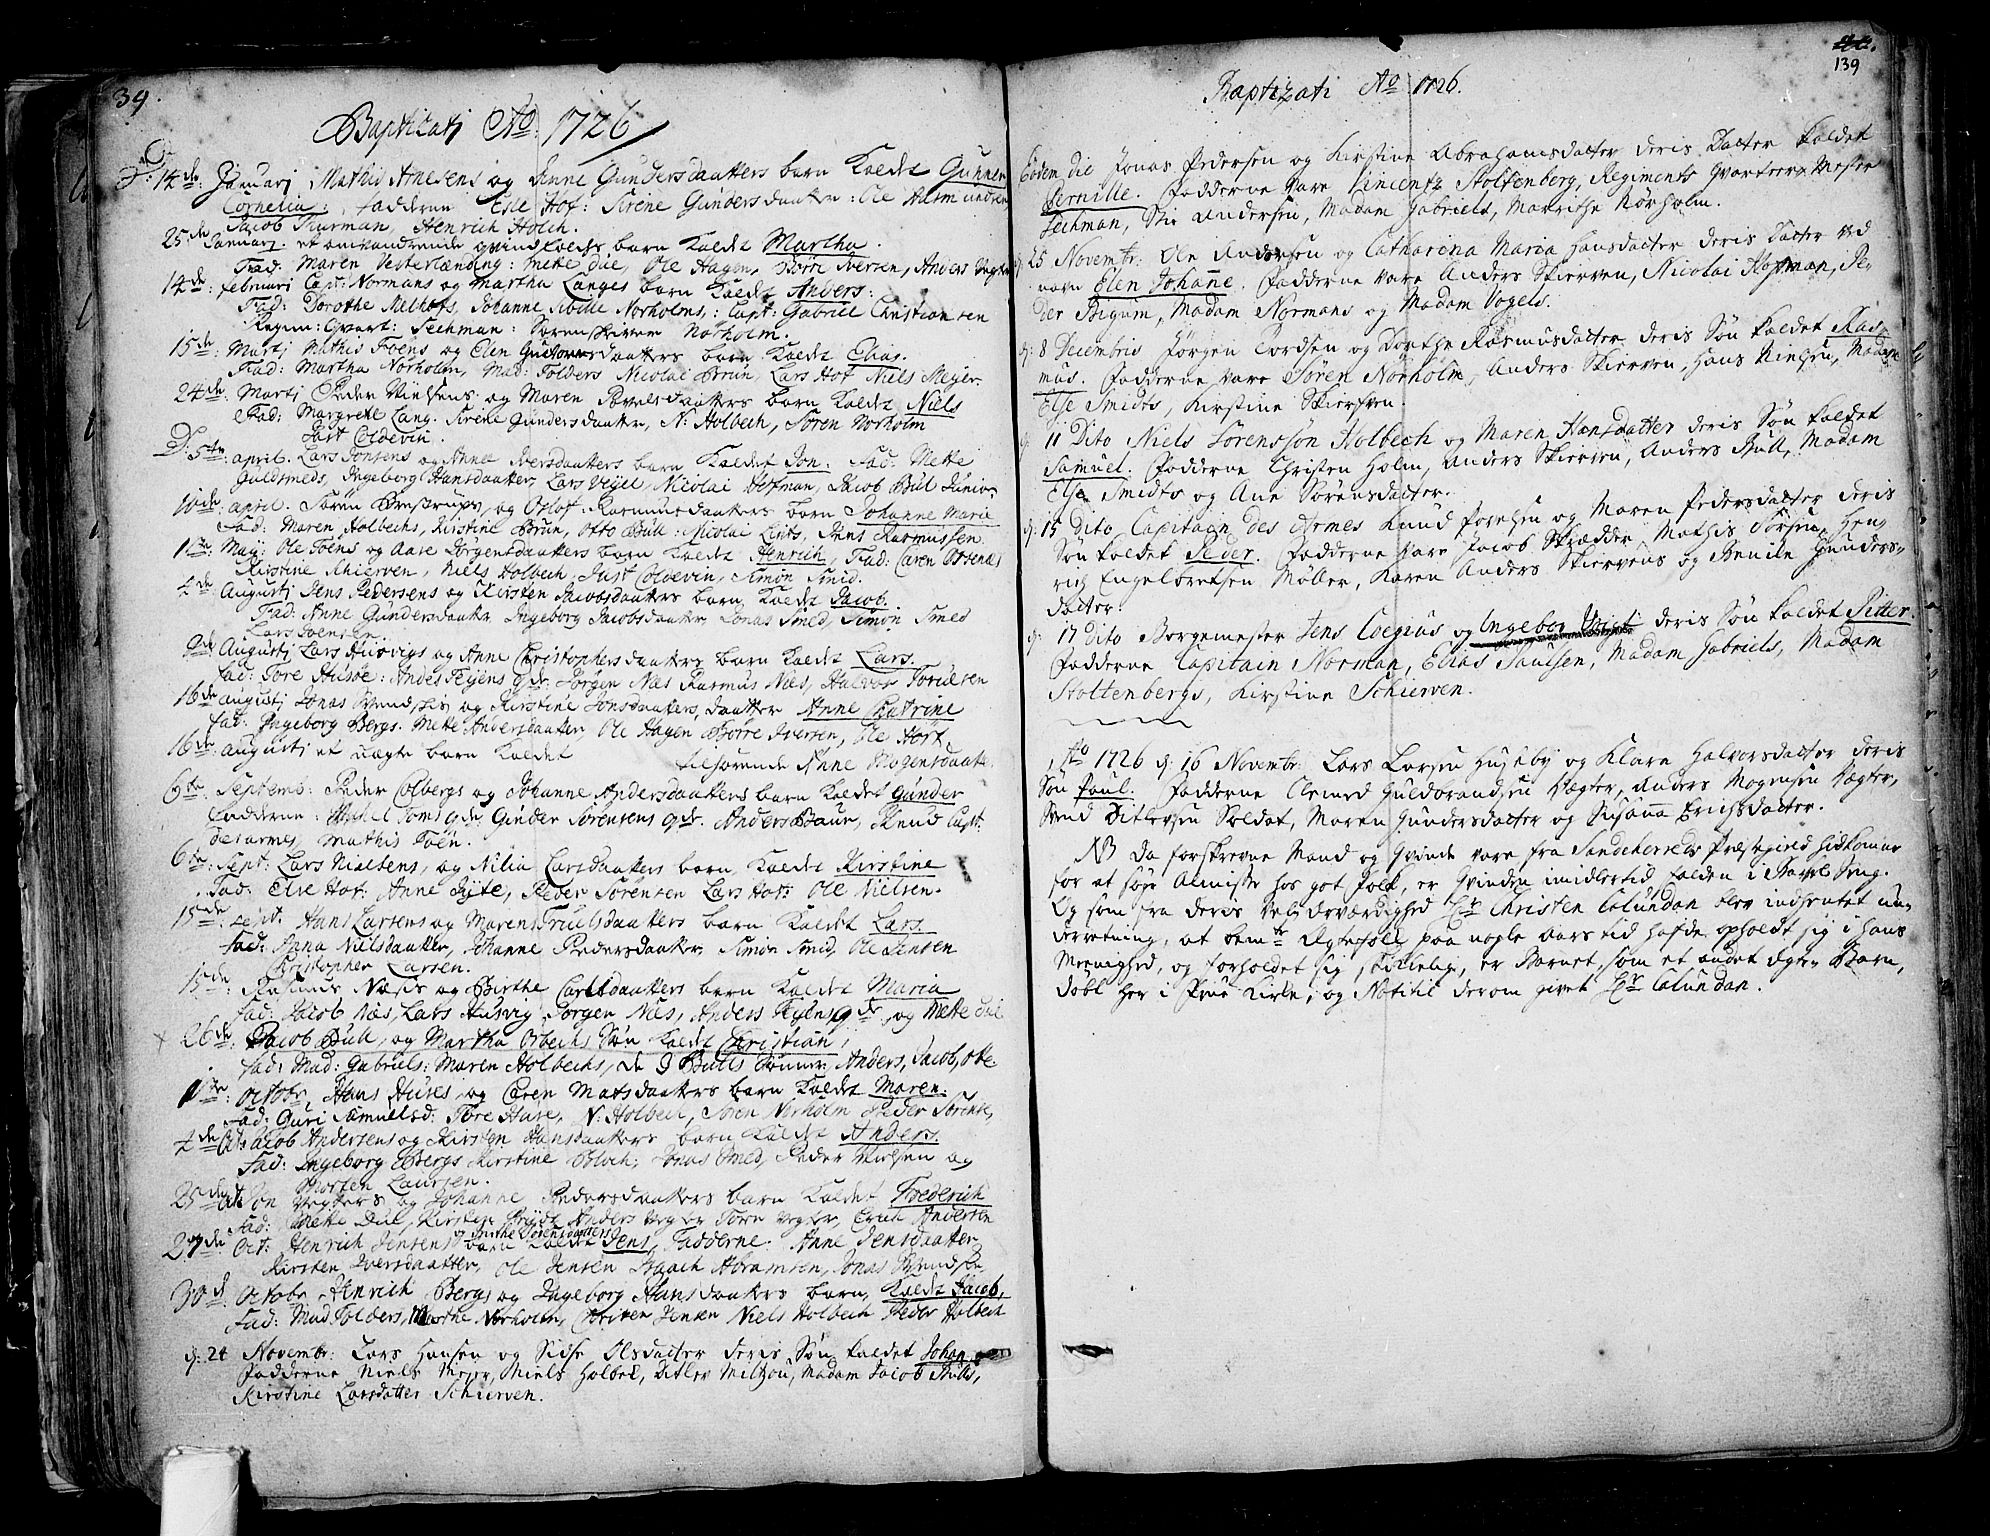 39.
Baptizati Ao: 1726
D: 14de: Januarj Mathis Arnesens og Anne Gundersdaatters barn Kaldet Gunner
Cornelia: fadderne Else Hof: Sirene Gundersdaatter: Ole
Jacob Thurman, Henrich Holch.
25de Januarj. et omvandrende qvindfolchs barn Kaldet Martha.
Fad: Maren Vesterlænding: Mette Due, Ole Hagen, Børre Iversen, Anders
14de: februarj Capt: Normans og Martha Langes barn Kaldet Anders:
Fad: Dorothe Johanne Norholms: Capt: Gabriel Christiansen
Regim: Qvart: Techman: Sorenskriver Norholm.
15de: Martj Mathis Foens og Elen daatters barn Kaldet Elias.
Fad: Martha Norholm, Mad: Folders Nicolai Brun, Lars Hof Niels Meyer.
24de Martj Peder Nielsens og Maren Povelsdaatters barn Kaldet Niels
Fad: Margrete Lang. Sirene Gundersdaatter, N: Holbech, Soren Norholm
Just Coldevin.
D: 5te: april. Lars Jonsens og Anne Iversdaatters barn Kaldet Jon: Fad: Mette
Guldsmeds, Ingeborg Hansdaatter, Lars Vejle, Nicolai Hofman, Jacob Bul Junior
10de: april. Søren og Oslof: Rasmusdaatters barn Johanne Maria
Fad: Maren Holbechs, Kirstine Brun, Otto Bull: Nicolai Jens Rasmussen.
1te: Maij: Ole Foens og Aase Jorgensdaatters barn Kaldet Henrich, Fad: Caren
Kirstine Schierven, Niels Holbech, Just Coldevin, Simon Smid.
4de Augustj Jens Pedersens og Kirsten Jacobsdaatters barn Kaldet Jacob.
Fad: Anne Gundersdaatter Ingeborg Jacobsdaatter, Jonas Smed, Simon Smed
Lars Svensen.
9de Augustj Lars Husvigs og Anne Christophersdaatters barn Kaldet Lars.
Fad: Tore Husøe: Jorgen Næs Rasmus Næs, Halvor
16de augustj Jonas og Kirstine Jonsdaatters, daatter Anne Catrine
Fad: Ingeborg Bergs. Mette Andersdaatter, Ole Hagen Børre Iversen, Ole
16de augustj et uægte barn Kaldet tilhørende Anne Mogensdaatter
6te: Septemb: Peder Colbergs og Johanne Andersdaatters barn Kaldet Gunder
Fadderne: Ginder Sorensens qde. Anders Baun, Knud Capt:
desarmes, Mathis Foen.
6te: Sept: Lars Nielsens, og Nilia Larsdaatters barn Kaldet Kirstine
Fad: Else Hof: Anne Peder Sørensen Lars Hof: Ole Nielsen.
15de: sept: Hans Larsens og Maren Truelsdaatters barn Kaldet Lars.
Fad: Anna Nielsdaatter, Johanne Pedersdaatter Simon Smid, Ole Jensen
Christopher Larsen.
15de: Rasmus Næsis og Birthe Carlsdaatters barn Kaldet Maria
Fad: Jacob Næs, Lars Husvig, Jorgen Næs, Anders qde, og Mette
26de: Jacob Bull, og Martha Søn Kaldet Christian,
Fad: Mad: Gabriels: Maren Holbechs, de 3 Bulls Sønner: Anders, Jacob, Otte.
1te: octobr, Hans Huses, og Caren Matsdaatters barn Kaldet Maren:
Fad: Guri Samuelsd: Tore Huse, N: Holbech, Soren Norholm Peder Sorense,
4de Oct: Jacob Andersens og Kirsten Hansdaatters barn Kaldet Anders.
Fad: Ingeborg Bergs Kirstine Bloch, Jonas Smed, Peder Nielsen og
Morten Laursen.
25de Oct: Jon Vegters og Johanne Pedersdaatters barn Kaldet Frederich
Fad: Mette Kirsten Anders Vegter Erich Andersen
27de: Oct: Henrich Jensens og Birthe Sorensdaatters barn Kaldet Jens, Fadderne: Anne Jensdaatter
Kirsten Iversdaatter, Ole Jensen Isaach Abramsen, Jonas
30de: Octobr Henrich Bergs og Ingeborg Hansdaatters barn, Kaldet Jacob,
Fad: Mad Folders, Marthe Norholm, Christen Jensen Niels Holbech Peder Holbech
d: 24 Novembr: Lars Hansen og Sidse Olsdatter deris Søn kaldet Johan
Fadderne Niels Niels Holbek, Ditlev Meltzou, Madam Jacob Bulls,
Kirstine Larsdatter Schierven.
139
Baptizati Ao 1726.
Eodem die Jonas Pedersen og Kirstine Abrahamsdatter deris Datter kaldet
Pernille. Fadderne vare Vincentz Stoltenberg, Regiments Qvarteer Mester
Techman, Ole Andersen, Madam Gabriels, Marrithe Nørholm.
d: 25 Novembr: Ole Andersen og Catharina Maria Hansdatter deris datter ved
navn Elen Johanne. Fadderne vare Anders Skierven, Nicolai Hofman, Pe-
der Bigum, Madam Normans og Madam Vogels.
d: 8 Decembris Jørgen Tordsen og Dorthe Rasmusdatter deris Søn kaldet Ras
mus. Fadderne vare Søren Nørholm, Anders Skierven, Hans Nielsen, Madam
Else Smidts, Kirstine Skierfven.
d: 11 Dito Niels Sørenssøn Holbech og Maren Hansdatter deris Søn kaldet
Samuel. Fadderne Christen Holm, Anders Skierven, Anders Bull, Madam
Else Smidts og Ane Sørensdatter.
d: 15 Dito Capitain des Armes Knud og Maren Pedersdatter deris
Søn kaldet Peder. Fadderne vare Jacob Skrædder, Mathis Hen
rich Engelbretsen Møller, Karen Anders Skiervens og Gunders-
datter.
d: 17 Dito Borgemester Jens Coegius og Ingebor deris Søn kaldet Pitter.
Fadderne Capitain Norman, Elias Paulsen, Madam Gabriels, Madam
Stoltenbergs, Kirstine Schierven.
Ao 1726 d: 16 Novembr: Lars Larsen Huseby og Klara Halvorsdatter deris
Søn Paul. Fadderne Guldbrandsen Vægter, Anders Mogensen Vægter,
Svend Ditlevsen Soldat, Maren Gundersdatter og Susana Erichsdatter.
NB Da forskrevne Mand og Qvinde vare fra Sandeherreds Præstegield hidkomne
for at søge Almisse hos got folk, er Qvinden imidlertid falden i Barsel Seng.
Og som fra deris Velærværdighed Hr Christen Colundan blev indhentet un-
derretning, at bemte Ægtefolk paa nogle aars tid hafde opholdt sig i hans
Meenighed, og forholdet sig skikkelig, er Barnet, som et andet Ægte Barn,
døbt her i Kirke, og Notitie derom givet Hr Colundan.